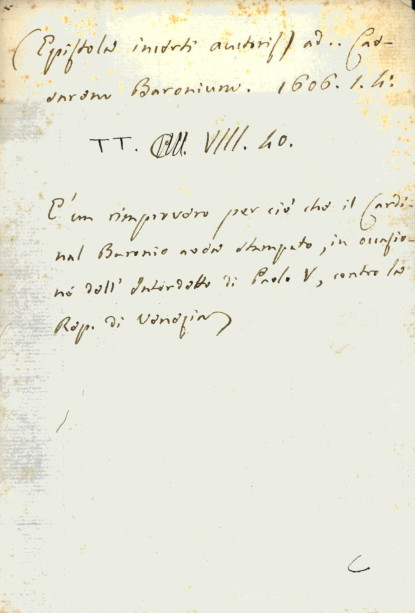 (Epistola incerti auctoris) ad.. Cae-
sarem Baronium. 1606. 1. 4.
TT. VIII. 40.
E' un rimprovero per ciò che il Cardi-
nal Baronio avea stampato, in occasio-
ne dell' Interdetto di Paolo V, contro la
Rep. di Venezia)